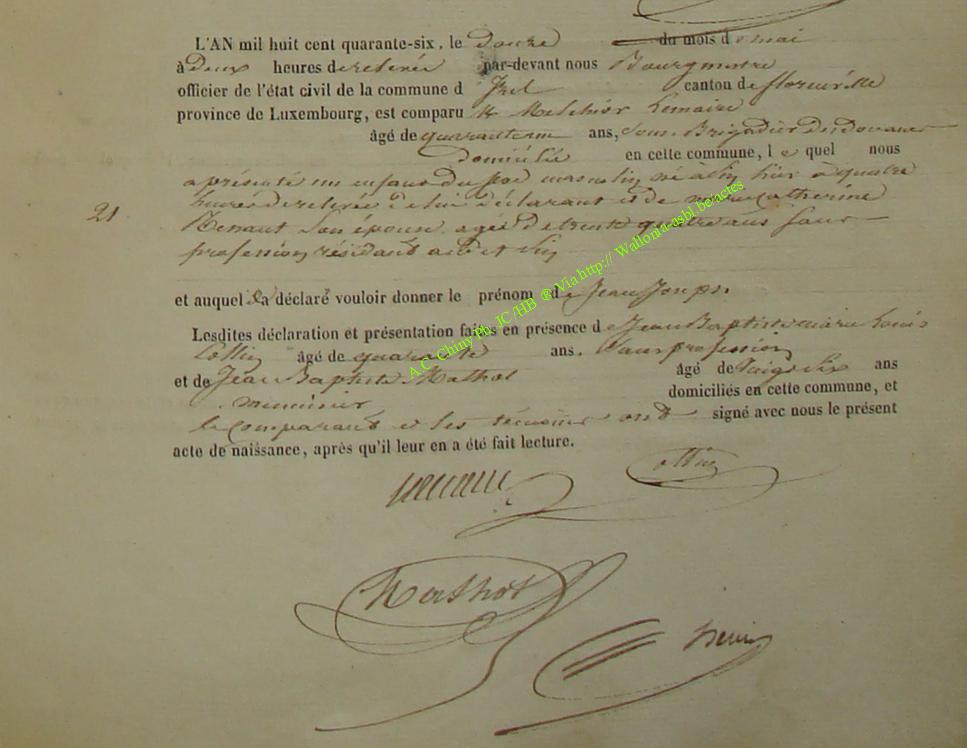 L'AN mil huit cent quarante-six, le Douze du mois de mai
à Deux heures de relevée par-devant nous Bourgmestre
officier de l'état civil de la commune d'Izel canton de florenville
province de Luxembourg, est comparu Melchior Lemaire
âgé de quarante un ans, Sous Brigadier Des Douanes
Domicilié en cette commune, le quel nous
a présenté un enfant du sexe masculin, né à hier à quatre
21
heures de relevée De lui Déclarant et de marie Catherine
Renaut Son épouse agée De trente quatre ans sans
profession, résidant
et auquel il a déclaré vouloir donner le prénom de Jean Joseph
Lesdites déclaration et présentation faites en présence de Jean Baptiste marie Louis
Lottin âgé de quarante ans. Sans profession
et de Jean Baptiste Mathot âgé de vingt six ans
menuisier domiciliés en cette commune, et
le Comparant et les témoins ont signé avec nous le présent
acte de naissance, après qu'il leur en a été fait lecture.
Mathot
A.C. Chiny Ph. JC /HB ® Via http:// Wallonia-asbl.be/actes